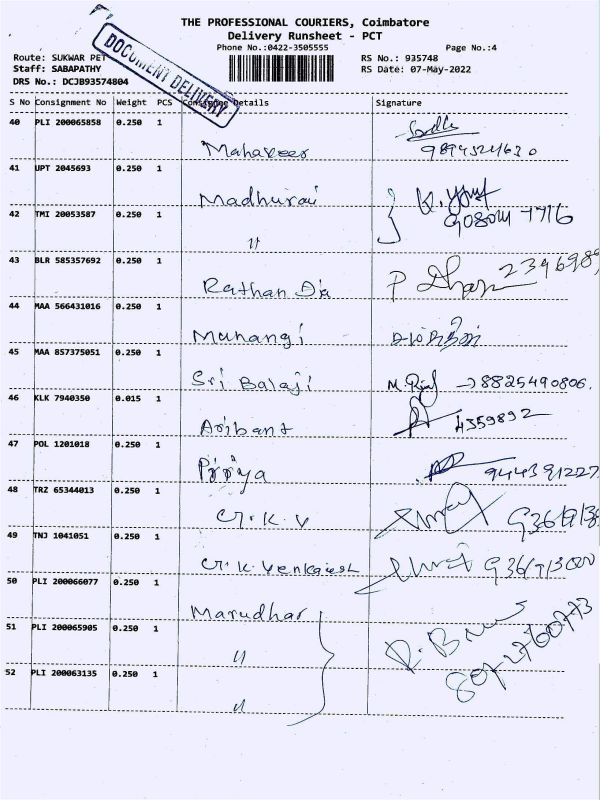 THE PROFESSIONAL COURIERS, Coimbatore
Delivery Runsheet - PCT
Phone No.:0422-3505555 Page No.:4
Route: SUKWAR PET RS No.: 935748
Staff: SABAPATHY RS Date: 07-May-2022
DRS No.: DCJB93574804
DOCUMENT DELIVERY
S No Consignment No Weight PCS Consignee Details Signature
40 PLI 200065858 0.250 1
Mahaveer
41 UPT 2045693 0.250 1
Madhurai
42 TMI 20053587 0.250 1
"
43 BLR 585357692 0.250 1
Rathan
44 MAA 566431016 0.250 1
Mahangi
45 MAA 857375051 0.250 1
Sri Balaji → 8825490806.
46 KLK 7940350 0.015 1
Aribant 4359892
47 POL 1201018 0.250 1
Priya 944391227
48 TRZ 65344013 0.250 1
Cr. K. V
49 TNJ 1041051 0.250 1
Cr. K. Venkatesh
50 PLI 200066077 0.250 1
Marudhar
51 PLI 200065905 0.250 1
"
52 PLI 200063135 0.250 1
"